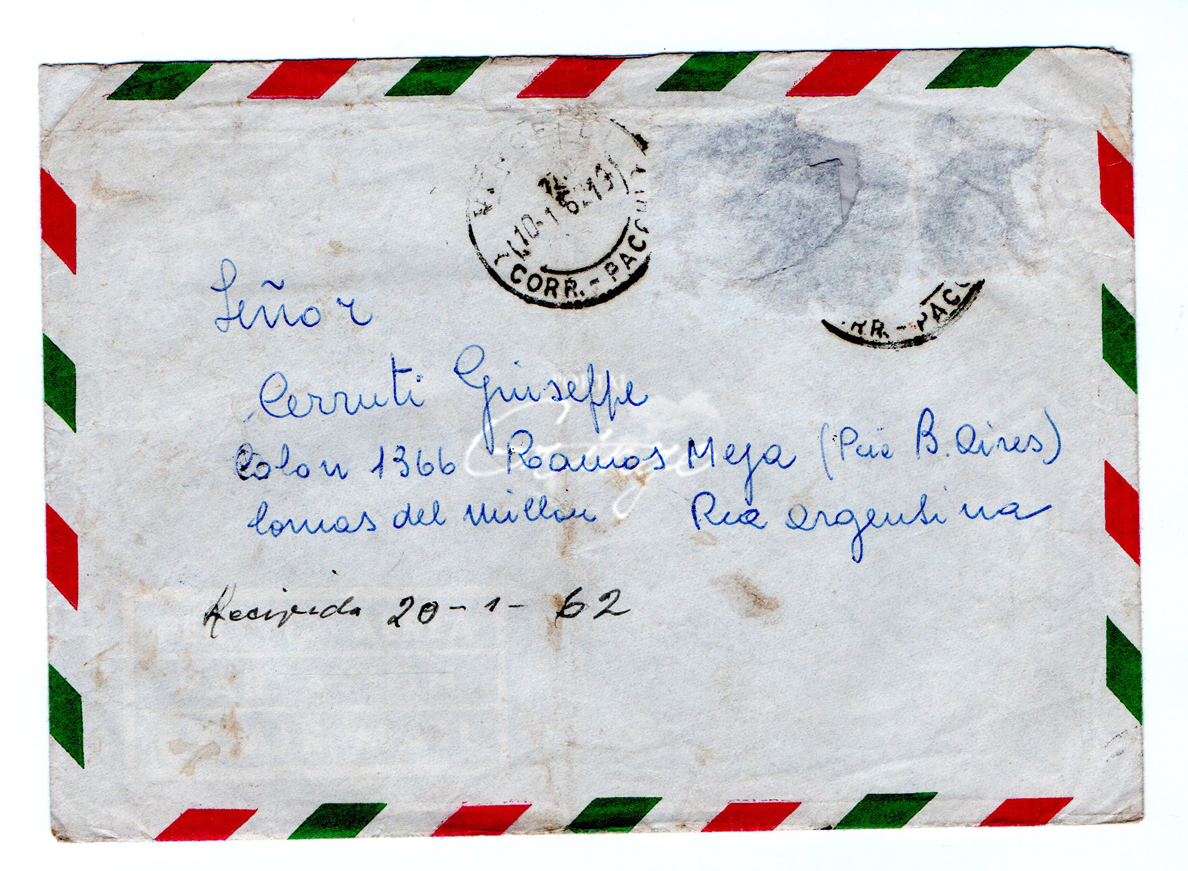 10-1-62-19
CORR.-PACCHI
RR.-PACC
Señor
Cerruti Giuseppe
Colon 1366 Ramos Meja (Pcie B. Aires)
lomas del millon Rca argentina
Recivida 20-1-62